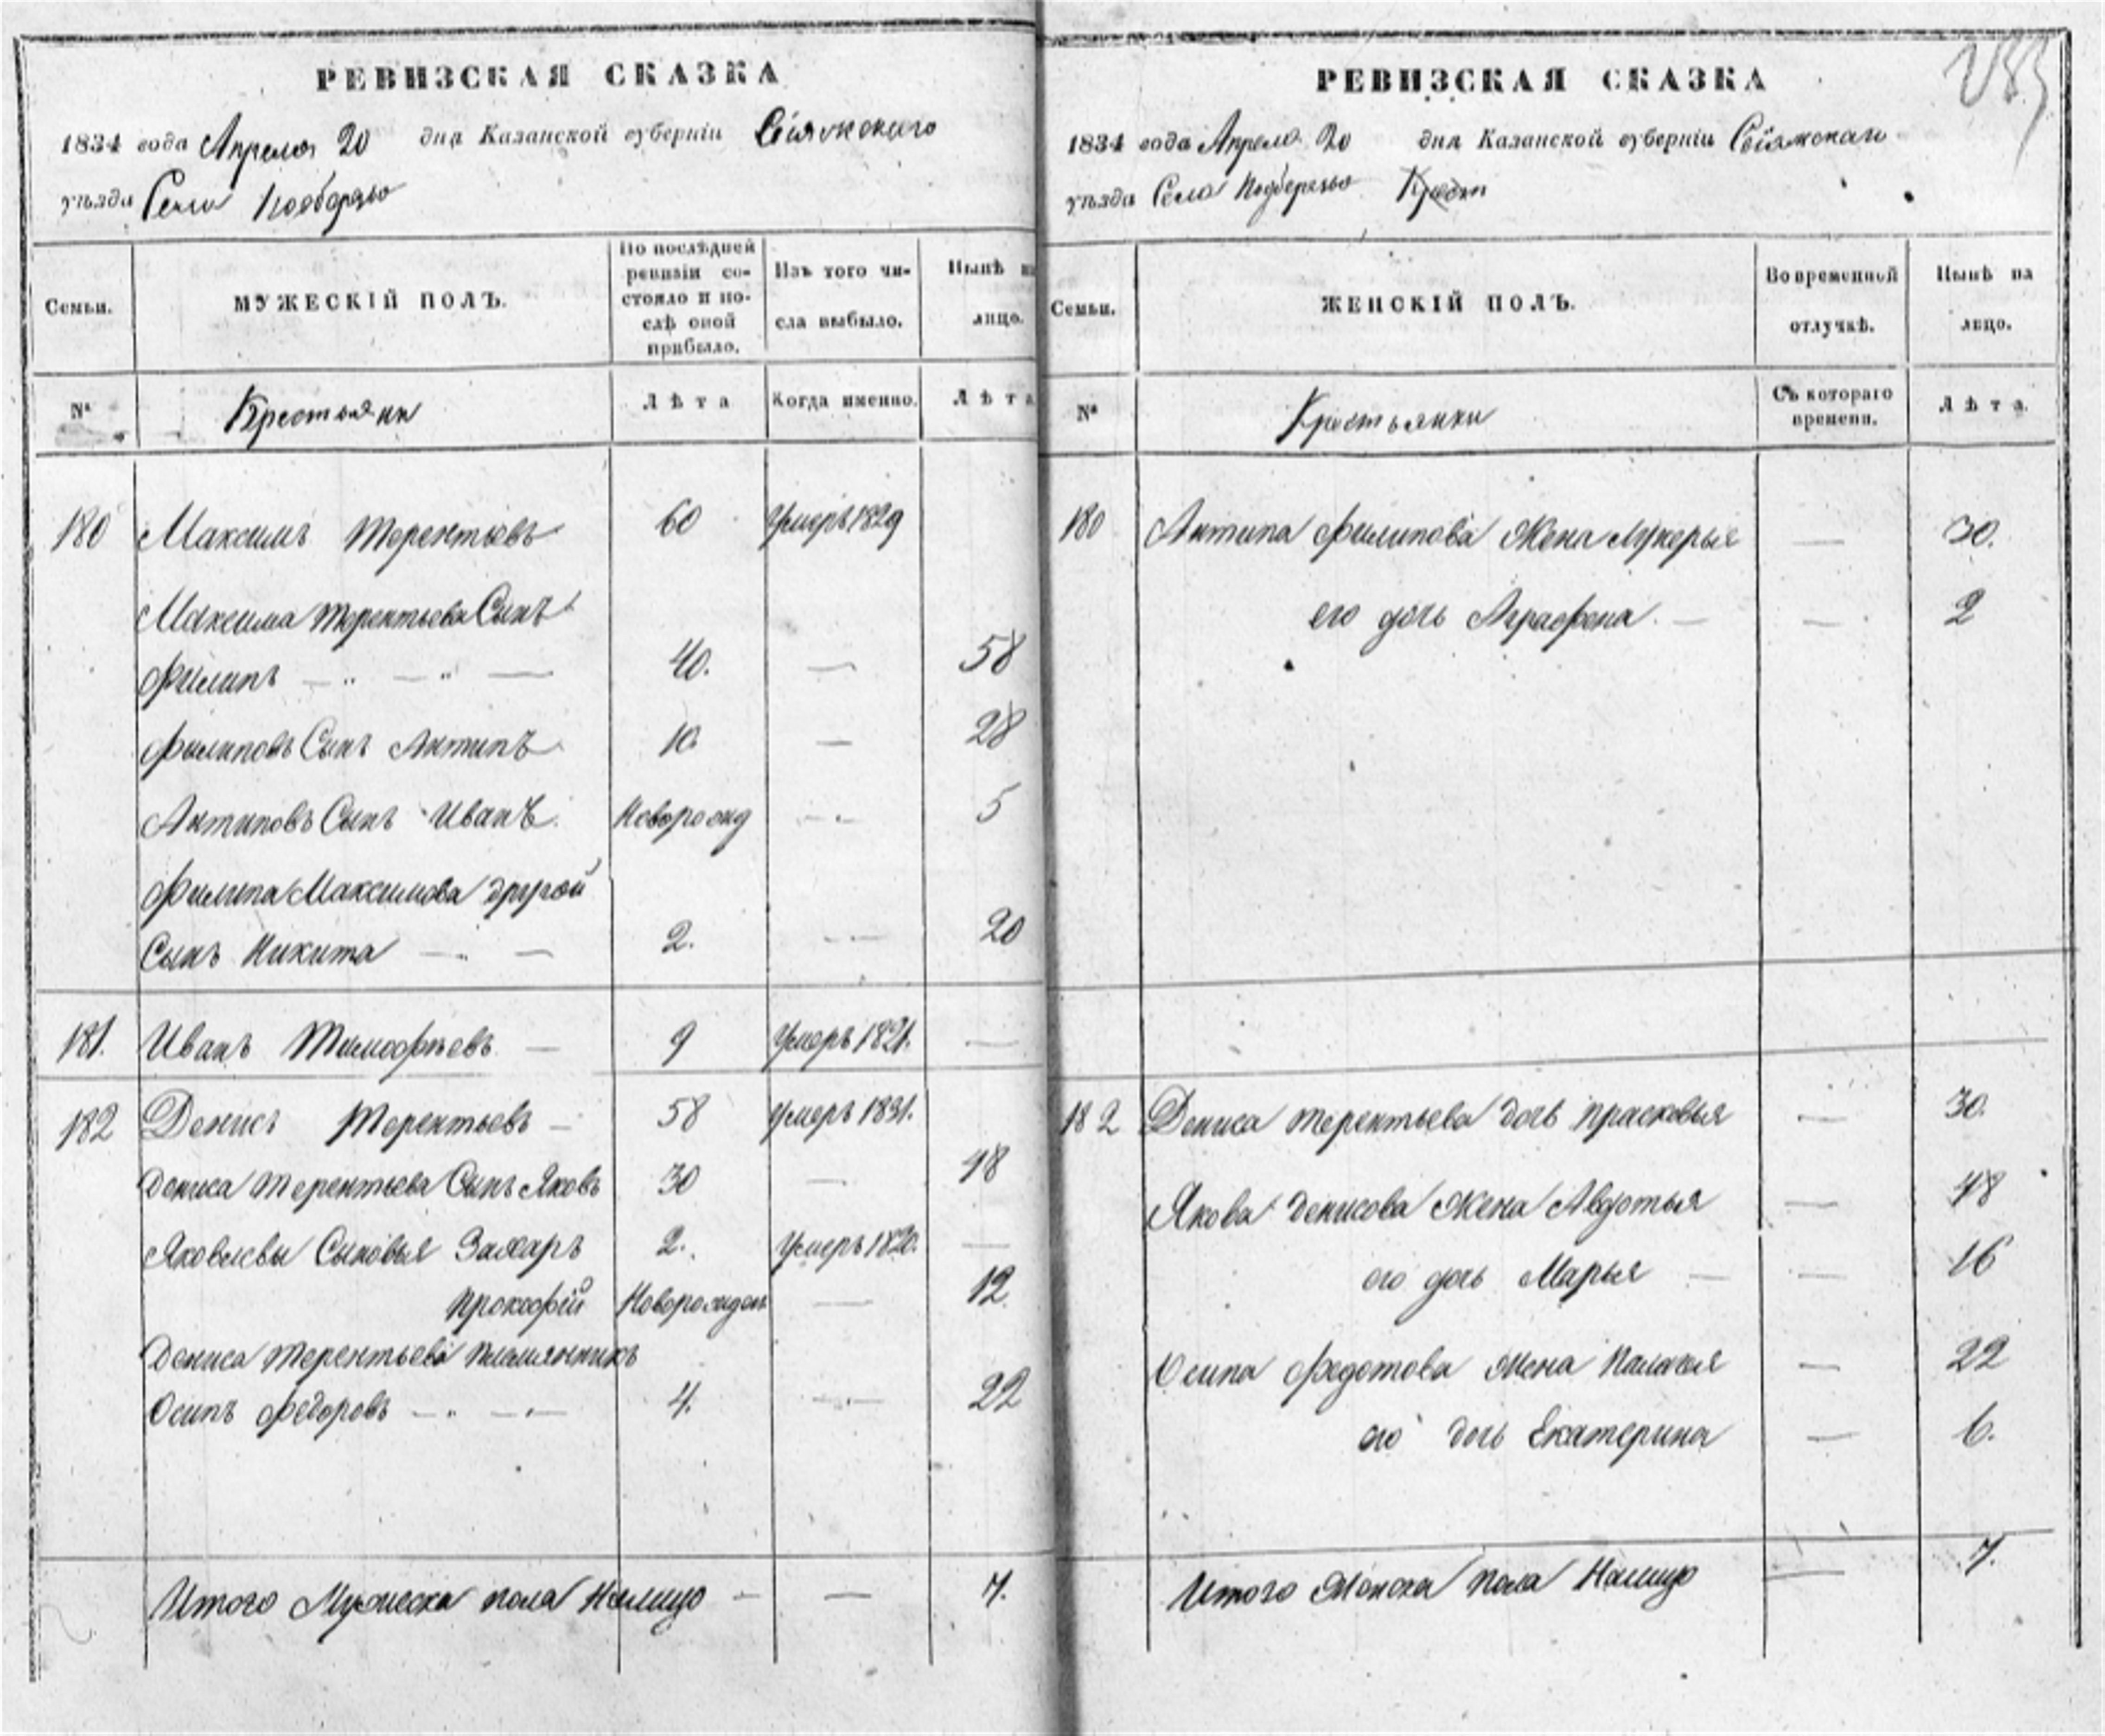 РЕВИЗСКАЯ СКАЗКА
1834 года Апреля 20 дня Казанской губерніи Свіяжскаго
уѣзда Села Подберезья
Семьи.
МУЖЕСКІЙ ПОЛЪ.
По послѣдней
ревизіи со-
стояло и по-
слѣ оной
прибыло.
Изъ того чи-
сла выбыло.
Нынѣ на
лицо.
№
Крестьяни
Лѣта
Когда именно.
Лѣта
180 Максимъ Терентьевъ 60 Умеръ 1829
Максима Терентьева Сынъ
Филипъ 40. — 58
Филиповъ Сынъ Антипъ 10. — 28
Антиповъ Сынъ Иванъ Новорожд — 5
Филипа Максимова другой
Сынъ Никита 2. — 20
181. Иванъ Тимофѣевъ — 9 Умеръ 1821. —
182 Денисъ Терентьевъ — 58 Умеръ 1831.
Дениса Терентьева Сынъ Яковъ 30 — 48
Яковлевы Сыновья Захаръ 2. Умеръ 1820. —
Прокофій Новорожден — 12
Дениса Терентьева племянникъ
Осипъ Федоровъ 4. — 22
Итого Мужеска пола Налицо — — 7.
РЕВИЗСКАЯ СКАЗКА
1834 года Апреля 20 дня Казанской губерніи Свіяжскаго
уѣзда Села Подберезья
Семьи.
ЖЕНСКІЙ ПОЛЪ.
Во временной
отлучкѣ.
Нынѣ на
лицо.
№
Крестьянки
Съ котораго
времени.
Лѣта.
180 Антипа Филипова Жена Лукерья — 30.
его дочь Аграфена — — 2
182 Дениса Терентьева дочь Прасковья — 30.
Якова Денисова Жена Авдотья — 48
его дочь Марья — — 16
Осипа Федотова Жена Палагея — 22
его дочь Екатерина — 6.
Итого Женска пола Налицо — 7.